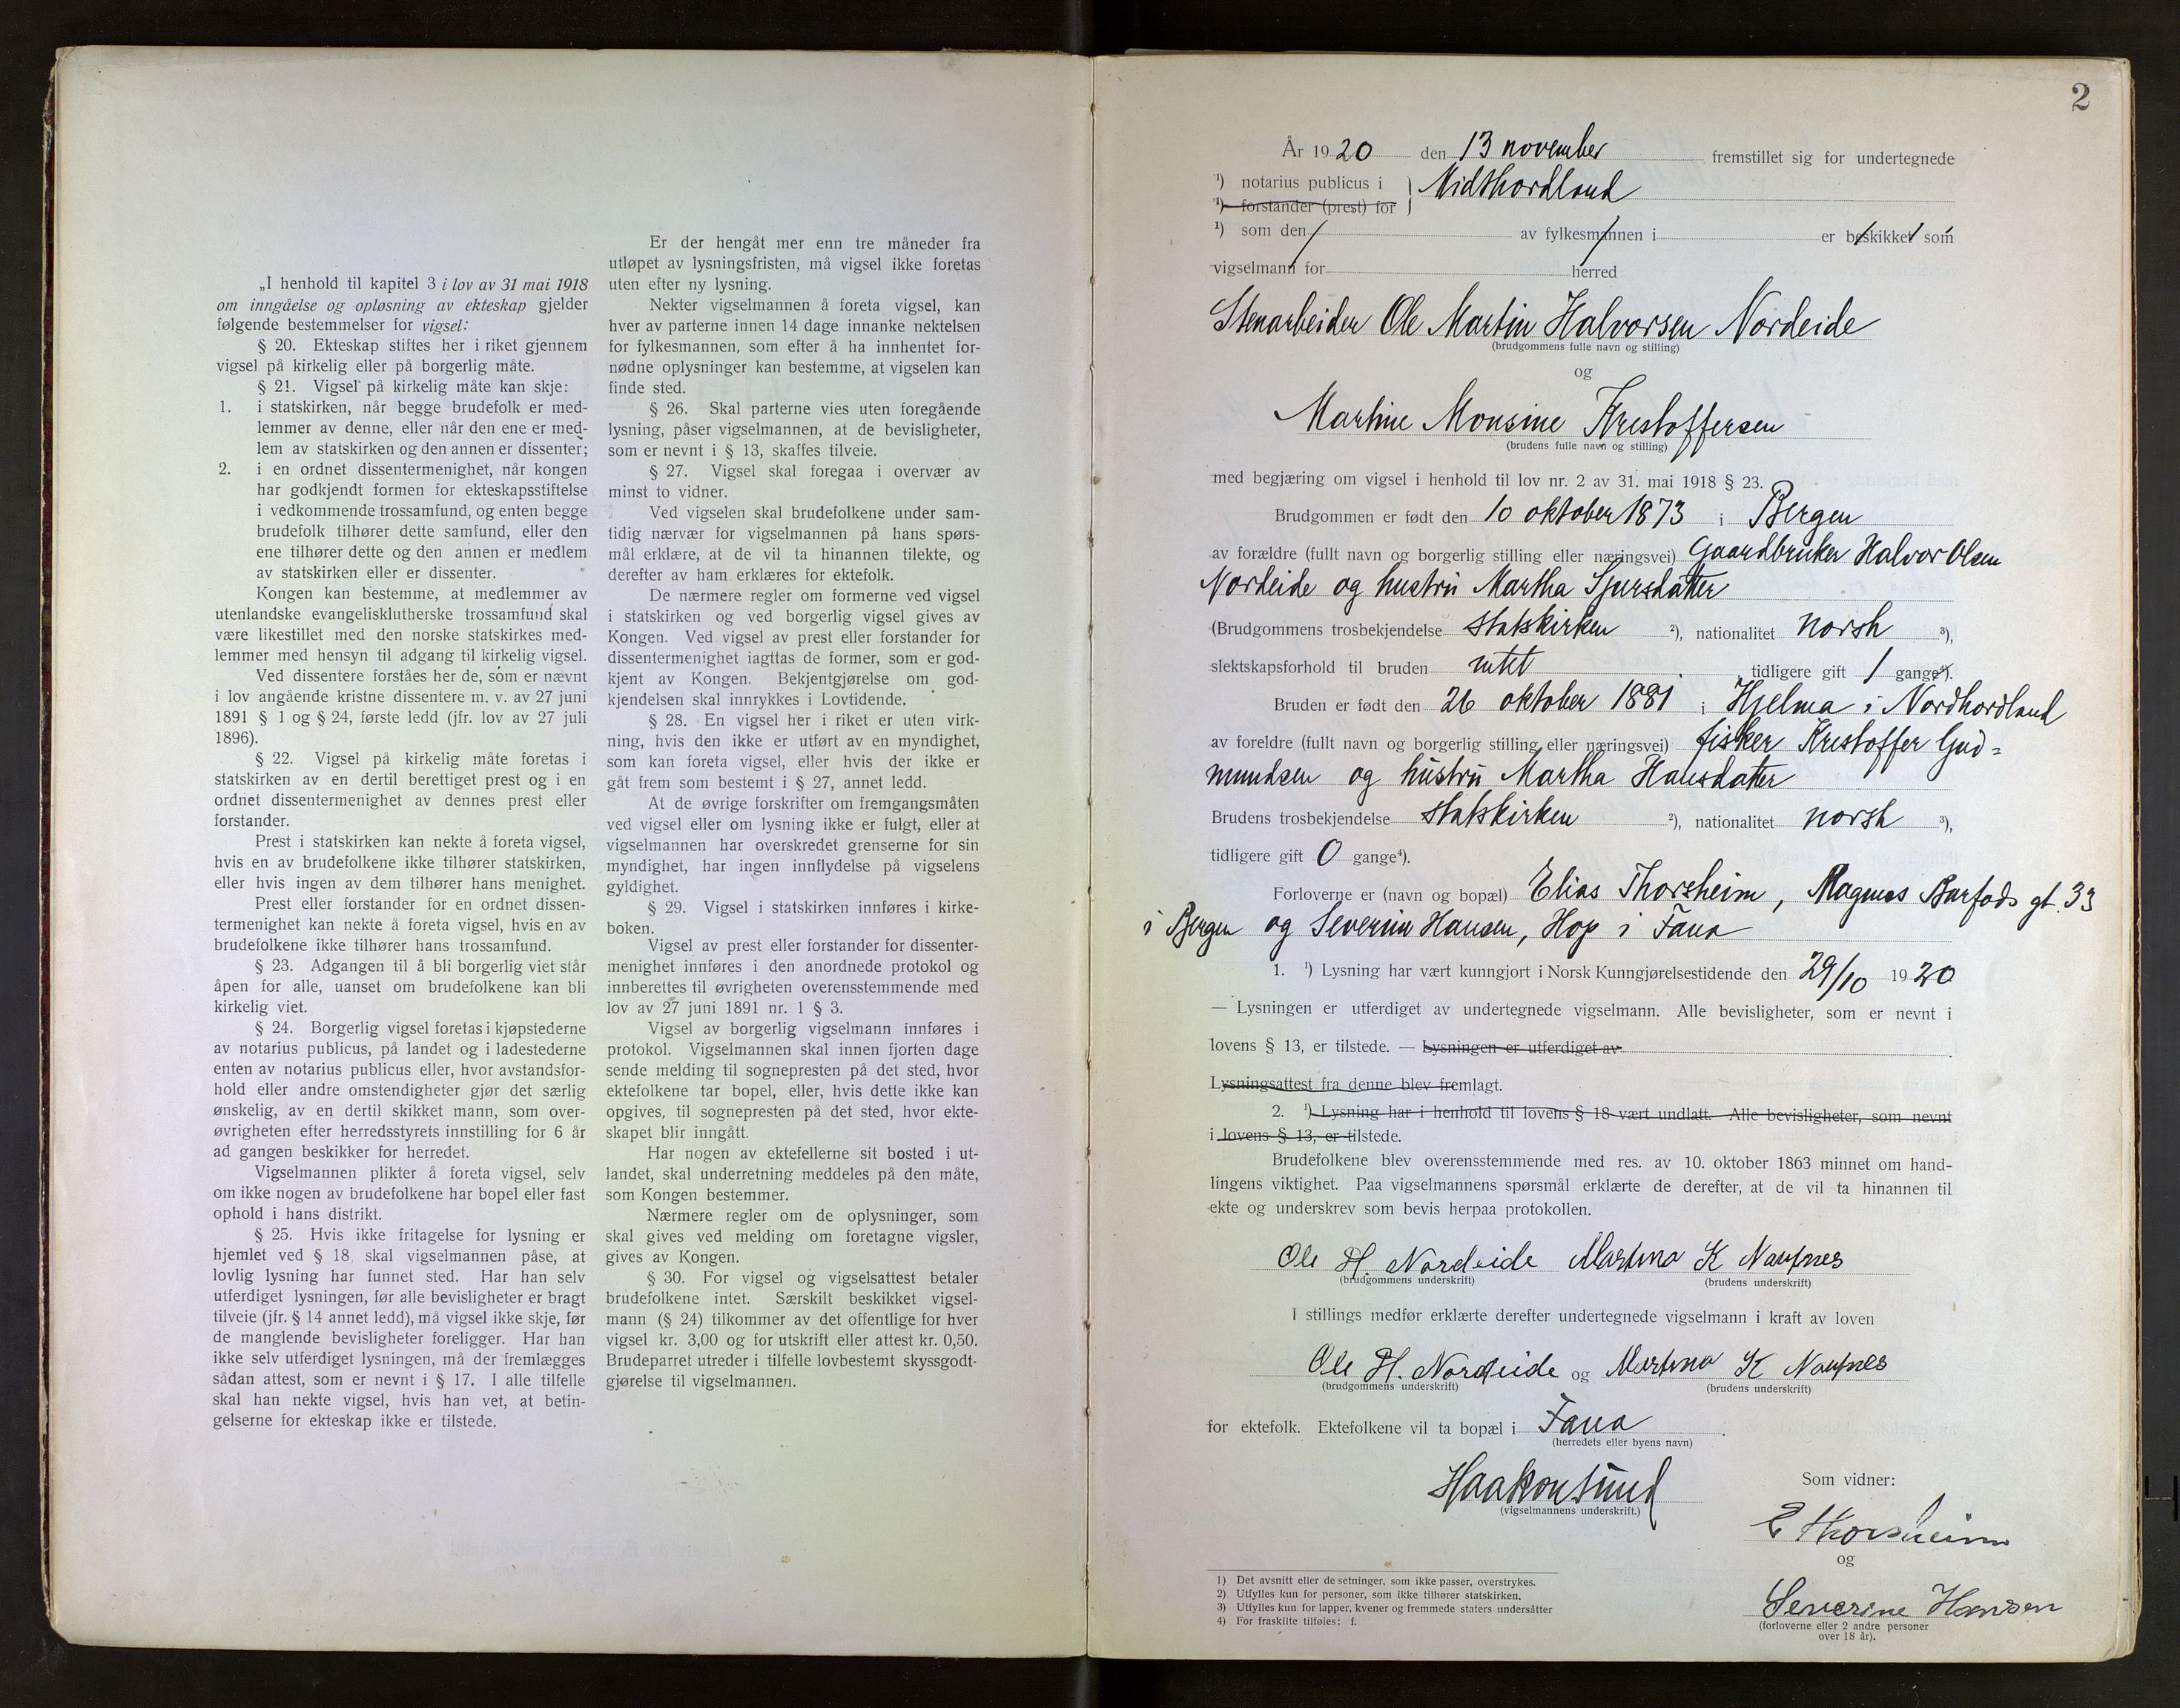 „I henhold til kapitel 3 i lov av 31 mai 1918
om inngåelse og opløsning av ekteskap gjelder
følgende bestemmelser for vigsel:
§ 20. Ekteskap stiftes her i riket gjennem
vigsel på kirkelig eller på borgerlig måte.
§ 21. Vigsel på kirkelig måte kan skje:
1. i statskirken, når begge brudefolk er med-
lemmer av denne, eller når den ene er med-
lem av statskirken og den annen er dissenter;
2. i en ordnet dissentermenighet, når kongen
har godkjendt formen for ekteskapsstiftelse
i vedkommende trossamfund, og enten begge
brudefolk tilhører dette samfund, eller den
ene tilhører dette og den annen er medlem
av statskirken eller er dissenter.
Kongen kan bestemme, at medlemmer av
utenlandske evangelisklutherske trossamfund skal
være likestillet med den norske statskirkes med-
lemmer med hensyn til adgang til kirkelig vigsel.
Ved dissentere forståes her de, som er nævnt
i lov angående kristne dissentere m. v. av 27 juni
1891 § 1 og § 24, første ledd (jfr. lov av 27 juli
1896).
§ 22. Vigsel på kirkelig måte foretas i
statskirken av en dertil berettiget prest og i en
ordnet dissentermenighet av dennes prest eller
forstander.
Prest i statskirken kan nekte å foreta vigsel,
hvis en av brudefolkene ikke tilhører statskirken,
eller hvis ingen av dem tilhører hans menighet.
Prest eller forstander for en ordnet dissen-
termenighet kan nekte å foreta vigsel, hvis en av
brudefolkene ikke tilhører hans trossamfund.
§ 23. Adgangen til å bli borgerlig viet står
åpen for alle, uanset om brudefolkene kan bli
kirkelig viet.
§ 24. Borgerlig vigsel foretas i kjøpstederne
av notarius publicus, på landet og i ladestederne
enten av notarius publicus eller, hvor avstandsfor-
hold eller andre omstendigheter gjør det særlig
ønskelig, av en dertil skikket mann, som over-
øvrigheten efter herredsstyrets innstilling for 6 år
ad gangen beskikker for herredet.
Vigselmannen plikter å foreta vigsel, selv
om ikke nogen av brudefolkene har bopel eller fast
ophold i hans distrikt.
§ 25. Hvis ikke fritagelse for lysning er
hjemlet ved § 18, skal vigselmannen påse, at
lovlig lysning har funnet sted. Har han selv
utferdiget lysningen, før alle bevisligheter er bragt
tilveie (jfr. § 14 annet ledd), må vigsel ikke skje, før
de manglende bevisligheter foreligger. Har han
ikke selv utferdiget lysningen, må der fremlægges
sådan attest, som er nevnt i § 17. I alle tilfelle
skal han nekte vigsel, hvis han vet, at betin-
gelserne for ekteskap ikke er tilstede.
Er der hengåt mer enn tre måneder fra
utløpet av lysningsfristen, må vigsel ikke foretas
uten efter ny lysning.
Nekter vigselmannen å foreta vigsel, kan
hver av parterne innen 14 dage innanke nektelsen
for fylkesmannen, som efter å ha innhentet for-
nødne oplysninger kan bestemme, at vigselen kan
finde sted.
§ 26. Skal parterne vies uten foregående
lysning, påser vigselmannen, at de bevisligheter,
som er nevnt i § 13, skaffes tilveie.
§ 27. Vigsel skal foregaa i overvær av
minst to vidner.
Ved vigselen skal brudefolkene under sam-
tidig nærvær for vigselmannen på hans spørs-
mål erklære, at de vil ta hinannen tilekte, og
derefter av ham erklæres for ektefolk.
De nærmere regler om formerne ved vigsel
i statskirken og ved borgerlig vigsel gives av
Kongen. Ved vigsel av prest eller forstander for
dissentermenighet iagttas de former, som er god-
kjent av Kongen. Bekjentgjørelse om god-
kjendelsen skal innrykkes i Lovtidende.
§ 28. En vigsel her i riket er uten virk-
ning, hvis den ikke er utført av en myndighet,
som kan foreta vigsel, eller hvis der ikke er
gåt frem som bestemt i § 27, annet ledd.
At de øvrige forskrifter om fremgangsmåten
ved vigsel eller om lysning ikke er fulgt, eller at
vigselmannen har overskredet grenserne for sin
myndighet, har ingen innflydelse på vigselens
gyldighet.
§ 29. Vigsel i statskirken innføres i kirke-
boken.
Vigsel av prest eller forstander for dissenter-
menighet innføres i den anordnede protokol og
innberettes til øvrigheten overensstemmende med
lov av 27 juni 1891 nr. 1 § 3.
Vigsel av borgerlig vigselmann innføres i
protokol. Vigselmannen skal innen fjorten dage
sende melding til sognepresten på det sted, hvor
ektefolkene tar bopel, eller, hvis dette ikke kan
opgives, til sognepresten på det sted, hvor ekte-
skapet blir inngått.
Har nogen av ektefellerne sit bosted i ut-
landet, skal underretning meddeles på den måte,
som Kongen bestemmer.
Nærmere regler om de oplysninger, som
skal gives ved melding om foretagne vigsler,
gives av Kongen.
§ 30. For vigsel og vigselsattest betaler
brudefolkene intet. Særskilt beskikket vigsel-
mann (§ 24) tilkommer av det offentlige for hver
vigsel kr. 3,00 og for utskrift eller attest kr. 0,50.
Brudeparret utreder i tilfelle lovbestemt skyssgodt-
gjørelse til vigselmannen.
2
År 1920 den 13 november fremstillet sig for undertegnede
¹) notarius publicus i } Midthordland
¹) forstander (prest) for
¹) som den / av fylkesmannen i / er beskikket som
vigselmann for herred
Stenarbeider Ole Martin Halvorsen Nordeide
(brudgommens fulle navn og stilling)
og
Martine Monsine Kristoffersen
(brudens fulle navn og stilling)
med begjæring om vigsel i henhold til lov nr. 2 av 31. mai 1918 § 23.
Brudgommen er født den 10 oktober 1873 i Bergen
av forældre (fullt navn og borgerlig stilling eller næringsvei) Gaardbruker Halvor Olsen
Nordeide og hustru Martha Sjursdatter
(Brudgommens trosbekjendelse statskirken ²), nationalitet norsk ³),
slektskapsforhold til bruden intet tidligere gift 1 gange⁴).
Bruden er født den 26 oktober 1881 i Hjelma i Nordhordland
av foreldre (fullt navn og borgerlig stilling eller næringsvei) fisker Kristoffer Gud=
mundsen og hustru Martha Hansdatter
Brudens trosbekjendelse statskirken ²), nationalitet norsk ³),
tidligere gift 0 gange⁴).
Forloverne er (navn og bopæl) Elias Thorsheim, Magnus Barfods gt. 33
i Bergen og Severin Hansen, Hop i Fana
1. ¹) Lysning har vært kunngjort i Norsk Kunngjørelsestidende den 29/10 1920
— Lysningen er utferdiget av undertegnede vigselmann. Alle bevisligheter, som er nevnt i
lovens § 13, er tilstede. — Lysningen er utferdiget av
Lysningsattest fra denne blev fremlagt.
2. ¹) Lysning har i henhold til lovens § 18 vært undlatt. Alle bevisligheter, som nevnt
i lovens § 13, er tilstede.
Brudefolkene blev overensstemmende med res. av 10. oktober 1863 minnet om hand-
lingens viktighet. Paa vigselmannens spørsmål erklærte de derefter, at de vil ta hinannen til
ekte og underskrev som bevis herpaa protokollen.
Ole H Nordeide Martina K
(brudgommens underskrift) (brudens underskrift)
I stillings medfør erklærte derefter undertegnede vigselmann i kraft av loven
Ole H. Nordeide og Martina K
(brudgommens underskrift) (brudens underskrift)
for ektefolk. Ektefolkene vil ta bopæl i Fana.
(herredets eller byens navn)
Haakon Lund
(vigselmannens underskrift.)
Som vidner:
E Thorsheim
og
Severine Hansen
(forloverne eller 2 andre personer
over 18 år).
1) Det avsnitt eller de setninger, som ikke passer, overstrykes.
2) Utfylles kun for personer, som ikke tilhører statskirken.
3) Utfylles kun for lapper, kvener og fremmede staters undersåtter
4) For fraskilte tilføies: f.